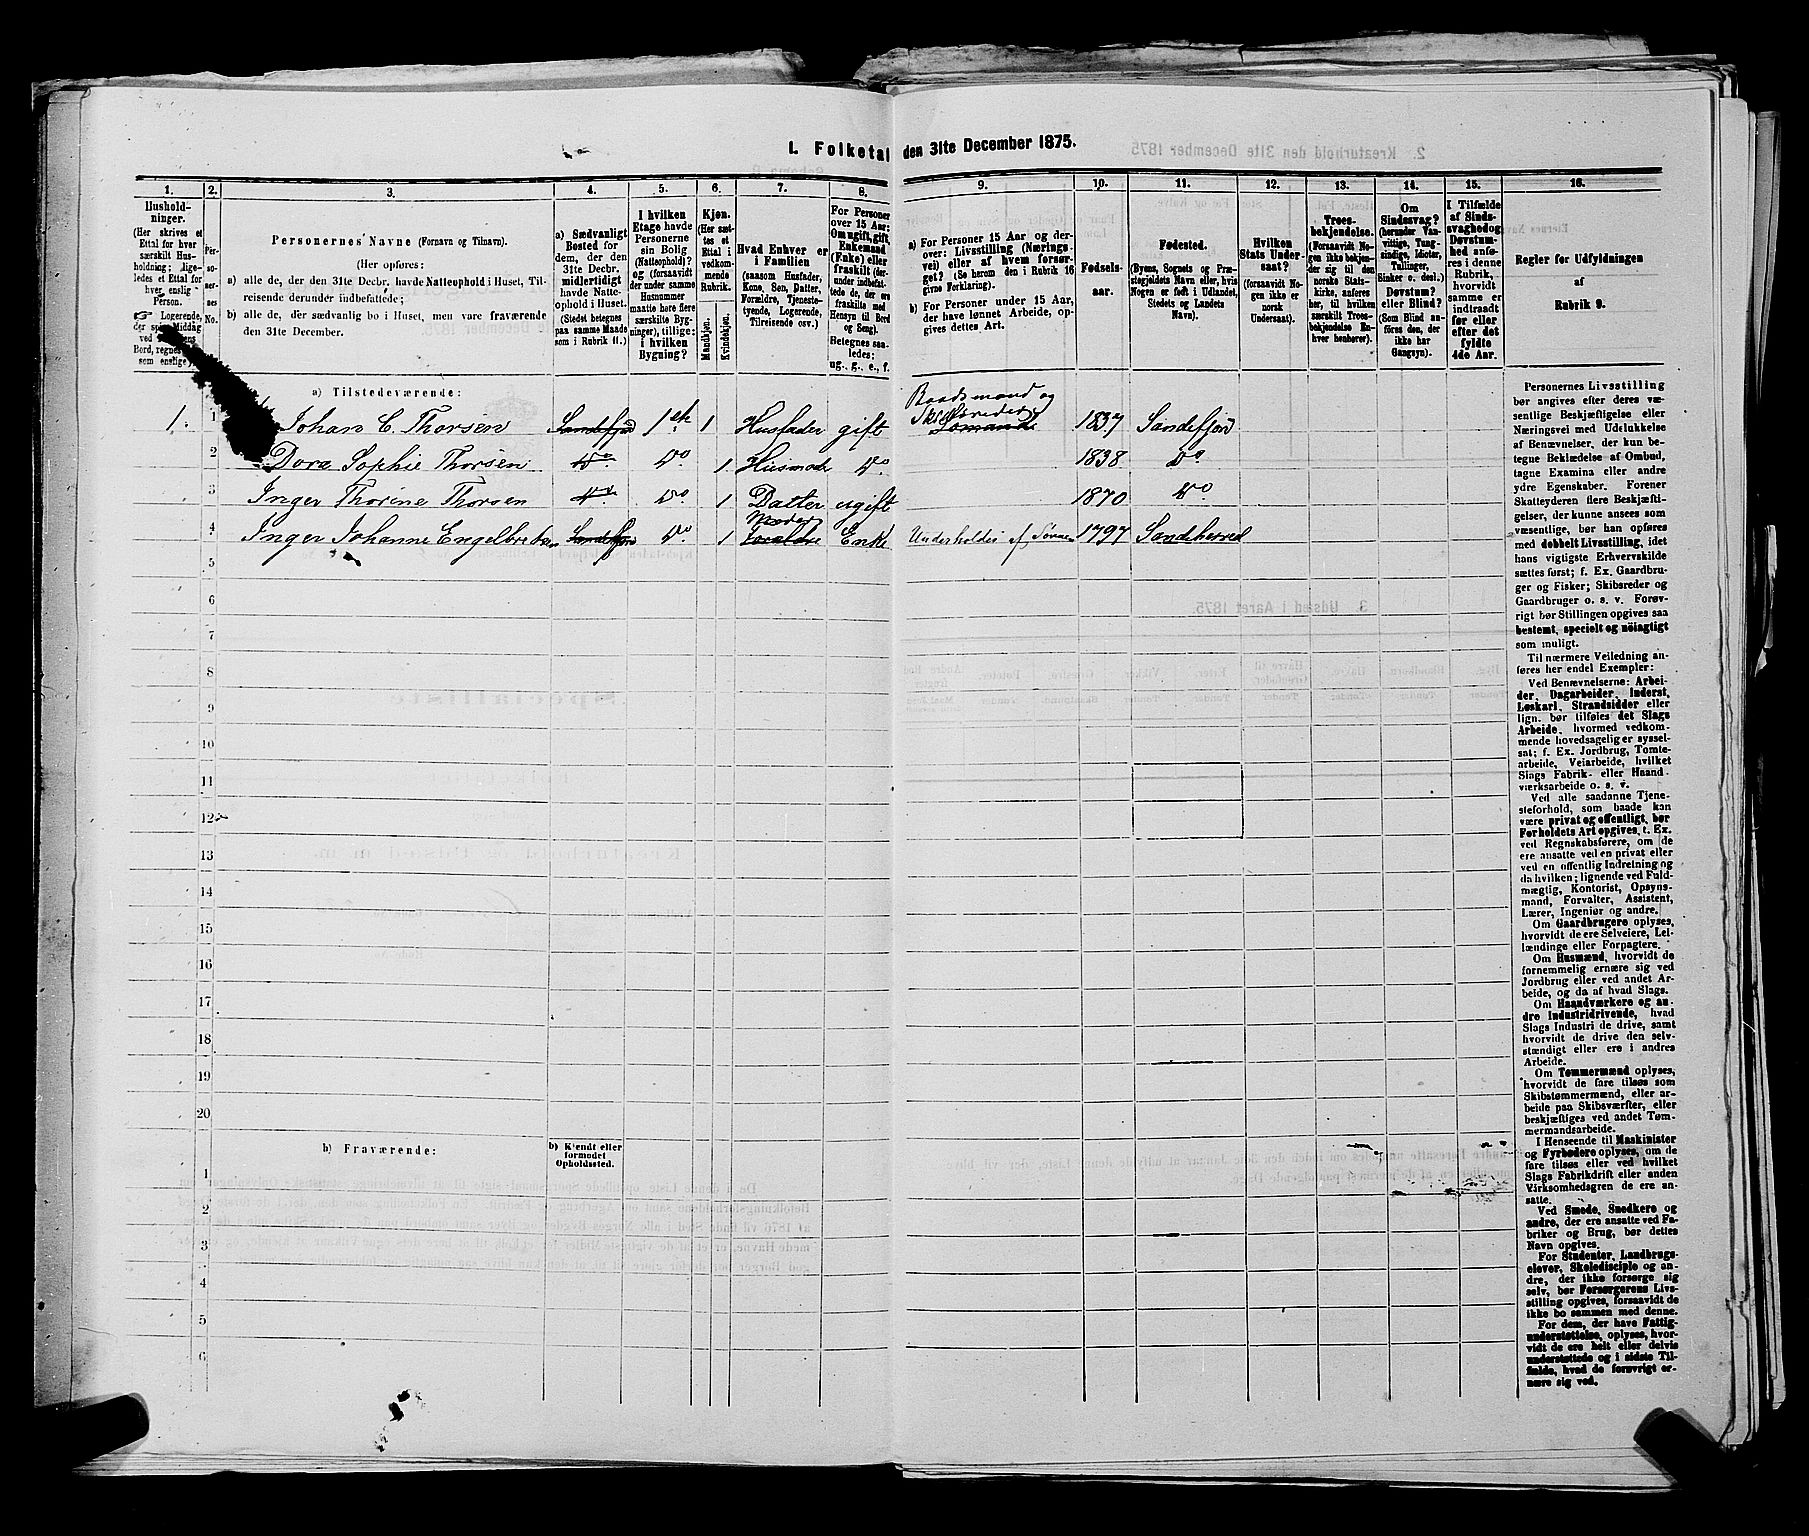 1. Folketal den 31te December 1875.
1. 2. 3. 4. 5. 6. 7. 8. 9. 10. 11. 12. 13. 14. 15. 16.
Hushold-
ninger.
(Her skrives et
Ettal for hver
særskilt Hus-
holdning; lige-
ledes et Ettal for
hver enslig
Person.
☞ Logerende,
der Middag
ved
Bord, regnes
som enslige)
Per-
so-
ner-
nes
No.
Personernes Navne (Fornavn og Tilnavn).
(Her opføres:
a) alle de, der den 31te Decbr. havde Natteophold i Huset, Til-
reisende derunder indbefattede;
b) alle de, der sædvanlig bo i Huset, men vare fraværende
den 31te December.
a) Sædvanligt
Bosted for
dem, der den
31te Decbr.
midlertidigt
havde Natte-
ophold i Huset.
(Stedet betegnes
paa samme Maade
som i Rubrik 11.)
I hvilken
Etage havde
Personerne
sin Bolig
(Natteophold)?
og (forsaavidt
der under samme
Husnummer
maatte høre flere
særskilte Byg-
ninger), tillige:
i hvilken
Bygning?
Kjøn.
(Her sæt-
tes et
Ettal i
vedkom-
mende
Rubrik.
Mandkjøn.
Kvindekjøn.
Hvad Enhver er
i Familien
(saasom Husfader,
Kone, Søn, Datter,
Forældre, Tjeneste-
tyende, Logerende,
Tilreisende osv.)
For Personer
over 15 Aar:
Om ugift, gift,
Enkemand
(Enke) eller
fraskilt (der-
under indbefat-
tede de, der ere
fraskilte med
Hensyn til Bord
og Seng).
Betegnes saa-
ledes:
ug., g., e., f.
a) For Personer 15 Aar og der-
over: Livsstilling (Nærings-
vei) eller af hvem forsør-
get? (Se herom den i Rubrik 16
givne Forklaring).
b) For Personer under 15 Aar,
der have lønnet Arbeide, op-
gives dettes Art.
Fødsels-
aar.
Fødested.
(Byens, Sognets og Præ-
stegjeldets Navn eller, hvis
Nogen er født i Udlandet,
Stedets og Landets
Navn).
Hvilken
Stats Under-
saat?
(forsaavidt No-
gen ikke er
norsk
Undersaat).
Troes-
bekjendelse.
(Forsaavidt No-
gen ikke bekjen-
der sig til den
norske Stats-
kirke, anføres
her, til hvilken
særskilt Troes-
bekjendelse En-
hver henhører).
Om
Sindssvag?
(herunder Van-
vittige, Tung-
sindige, Idioter,
Tullinger,
Sinker o. desl.)
Døvstum?
eller Blind?
(Som Blind an-
føres den, der
ikke har
Gangsyn).
I Tilfælde
af Sinds-
svaghed og
Døvstum-
hed anfø-
res i denne
Rubrik,
hvorvidt
samme er
indtraadt
før eller
efter det
fyldte
4de Aar.
Regler for Udfyldningen
af
Rubrik 9.
a) Tilstedeværende:
Baadsmand og
1. 1 Johan C. Thorsen Sandefjord 1 etc 1 Husfader gift Sømand 1837 Sandefjord
2 Dora Sophie Thorsen Do Do 1 Husmoder Do 1838 Do
3 Inger Thorine Thorsen Do Do 1 Datter ugift 1870 Do
Moder
4 Inger Johanne Engelbretsen Sandefjord Do 1 Forældre Enke Underholdes af Sønnen 1797 Sandeherred
5
6
7
8
9
10
11
12
13
14
15
16
17
18
19
20
b) Fraværende:
b) Kjendt eller
formodet
Opholdssted.
1
2
3
4
5
6
Personernes Livsstilling
bør angives efter deres væ-
sentlige Beskjæftigelse eller
Næringsvei med Udelukkelse
af Benævnelser, der kun be-
tegne Beklædelse af Ombud,
tagne Examina eller andre
ydre Egenskaber. Forener
Skatteyderen flere Beskjæfti-
gelser, der kunne ansees som
væsentlige, bør han opføres
med dobbelt Livsstilling, idet
hans vigtigste Erhvervskilde
sættes først; f. Ex. Gaardbru-
ger og Fisker; Skibsreder og
Gaardbruger o. s. v. Forøv-
rigt bør Stillingen opgives saa
bestemt, specielt og nöiagtigt
som muligt.
Til nærmere Veiledning an-
føres her endel Exempler:
Ved Benævnelserne: Arbei-
der, Dagarbeider, Inderst,
Løskarl, Strandsidder eller
lign. bør tilføies det Slags
Arbeide, hvormed vedkom-
mende hovedsagelig er syssel-
sat; f. Ex. Jordbrug, Tomte-
arbeide, Veiarbeide, hvilket
Slags Fabrik- eller Haand-
værksarbeide o. s. v.
Ved alle saadanne Tjene-
steforhold, som baade kan
være privat og offentligt, bør
Forholdets Art opgives, t. Ex.
ved Regnskabsførere, om de
ere ansatte ved en privat eller
ved en offentlig Indretning og
da hvilken; lignende ved Fuld-
mægtig, Kontorist, Opsyns-
mand, Forvalter, Assistent,
Lærer, Ingeniør og andre.
Om Gaardbrugere oplyses,
hvorvidt de ere Selveiere, Lei-
lændinge eller Forpagtere.
Om Husmænd, hvorvidt de
fornemmelig ernære sig ved
Jordbrug eller ved andet Ar-
beide, og da af hvad Slags.
Om Haandværkere og an-
dre Industridrivende, hvad
Slags Industri de drive, samt
hvorvidt de drive den selv-
stændigt eller ere i andres
Arbeide.
Om Tømmermænd oplyses,
hvorvidt de fare tilsøs som
Skibstømmermænd, eller ar-
beide paa Skibsværfter, eller
beskjæftiges ved andet Tøm-
mermandsarbeide.
I Henseende til Maskinister
og Fyrbødere oplyses, om de
fare tilsøs eller ved hvilket
Slags Fabrikdrift eller anden
Virksomhedsgren de ere an-
satte.
Ved Smede, Snedkere og
andre, der ere ansatte ved Fa-
briker og Brug, bør dettes
Navn opgives.
For Studenter, Landbrugs-
elever, Skoledisciple og an-
dre, der ikke forsørge sig
selv, bør Forsørgerens Livs-
stilling opgives, forsaavidt de
ikke bo sammen med denne.
For dem, der have Fattig-
understøttelse, oplyses, hvor-
vidt de ere helt eller delvis
understøttede og i sidste Til-
fælde, hvad de forøvrigt er-
nære sig ved.